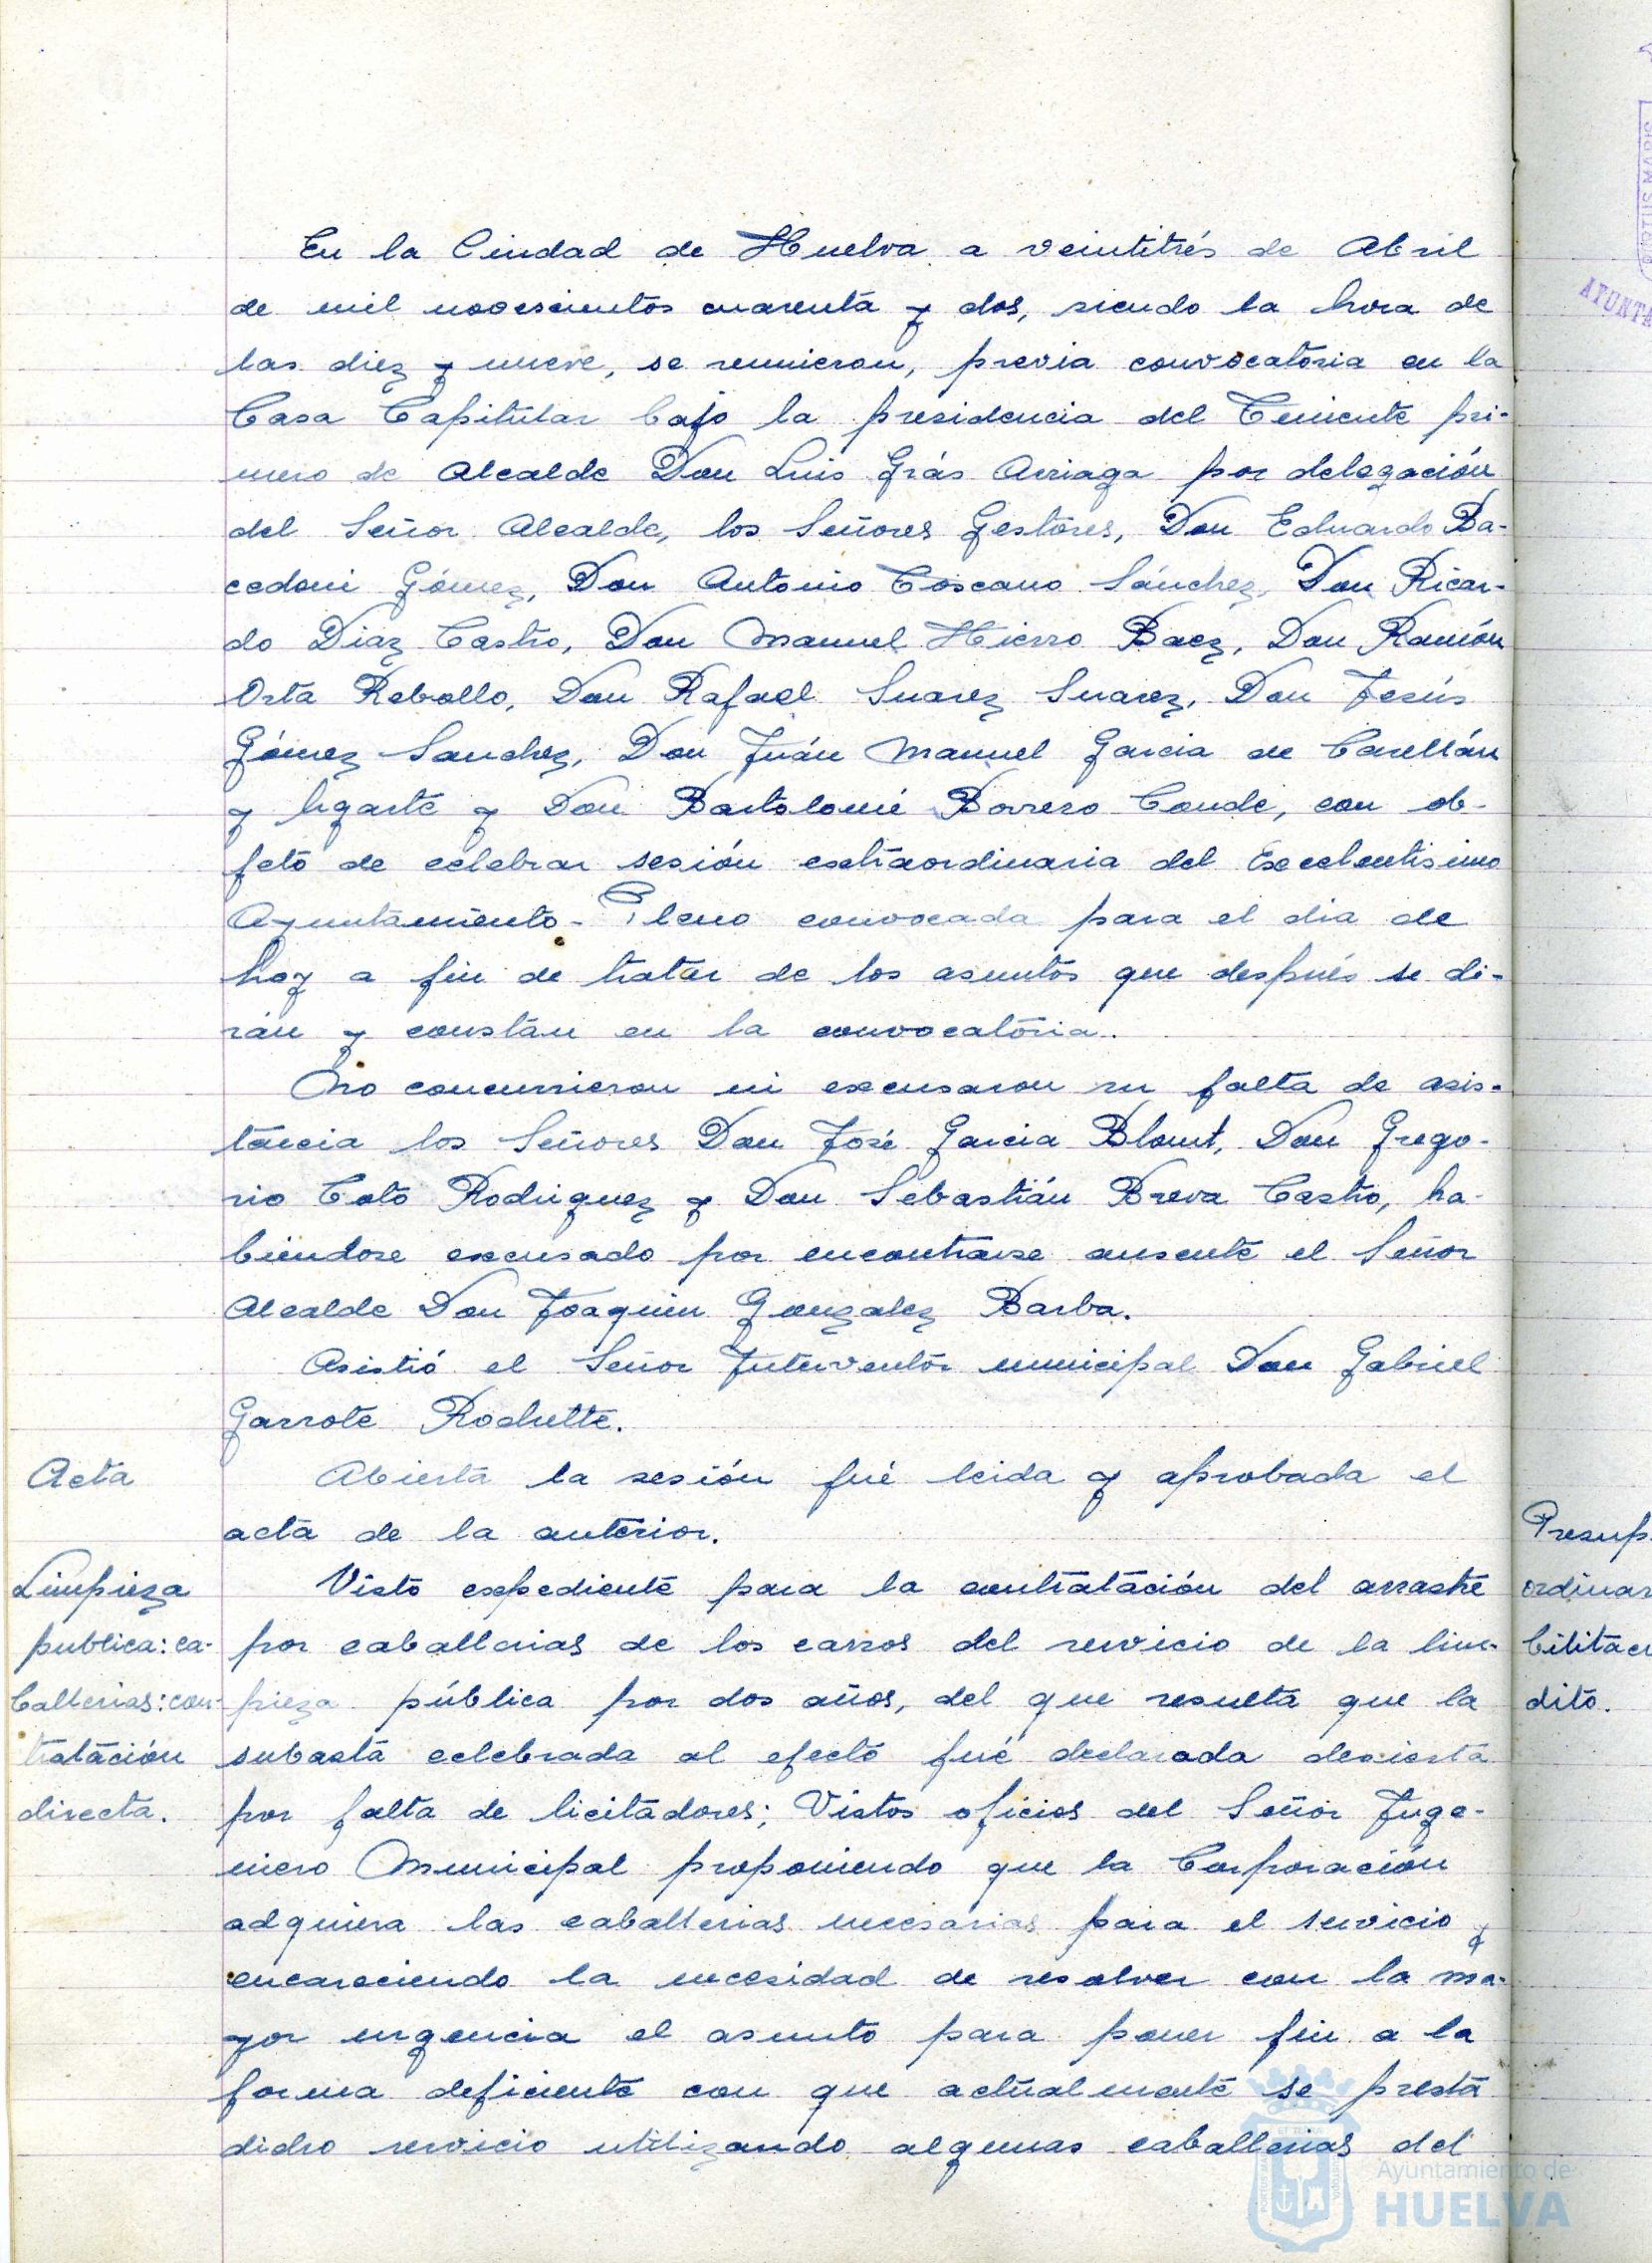 En la Ciudad de Huelva a veintitrés de Abril
de mil novescientos cuarenta y dos, siendo la hora de
las diez y nueve, se reunieron, previa convocatoria en la
Casa Capitular bajo la presidencia del Teniente pri-
mero de Alcalde Don Luis Grás Arriaga por delegación
del Señor Alcalde, los Señores Gestores, Don Eduardo Ba-
cedoni Gómez, Don Antonio Toscano Sánchez, Don Ricar-
do Diaz Castro, Don Manuel Hierro Baez, Don Ramón
Orta Rebollo, Don Rafael Suarez Suarez, Don Jesús
Gómez Sanchez, Don Juán Manuel Garcia de Carellán
y Ugarte y Don Bartolomé Borrero Conde, con ob-
jeto de celebrar sesión extraordinaria del Excelentisimo
Ayuntamiento-Pleno convocada para el dia de
hoy a fin de tratar de los asuntos que después se di-
rán y constan en la convocatoria.
No concurrieron ni excusaron su falta de asis-
tencia los Señores Don José Garcia Blount, Don Grego-
rio Coto Rodriguez y Don Sebastián Breva Castro, ha-
biendose excusado por encontrarse ausente el Señor
Alcalde Don Joaquin Gonzalez Barba.
Asistió el Señor Interventor municipal Don Gabriel
Garrote Rochette.
Acta
Abierta la sesión fué leida y aprobada el
acta de la anterior.
Limpieza
publica: ca-
ballerias: con-
tratación
directa.
Visto expediente para la contratación del arrastre
por caballerias de los carros del servicio de la lim-
pieza pública por dos años, del que resulta que la
subasta celebrada al efecto fué declarada desierta
por falta de licitadores; Vistos oficios del Señor Inge-
niero Municipal proponiendo que la Corporación
adquiera las caballerias necesarias para el servicio y
encareciendo la necesidad de resolver con la ma-
yor urgencia el asunto para poner fin a la
forma deficiente con que actualmente se presta
dicho servicio utilizando algunas caballerias del
Presup
ordinar
bilitac
dito.
AYUNTA
Ayuntamiento de
HUELVA